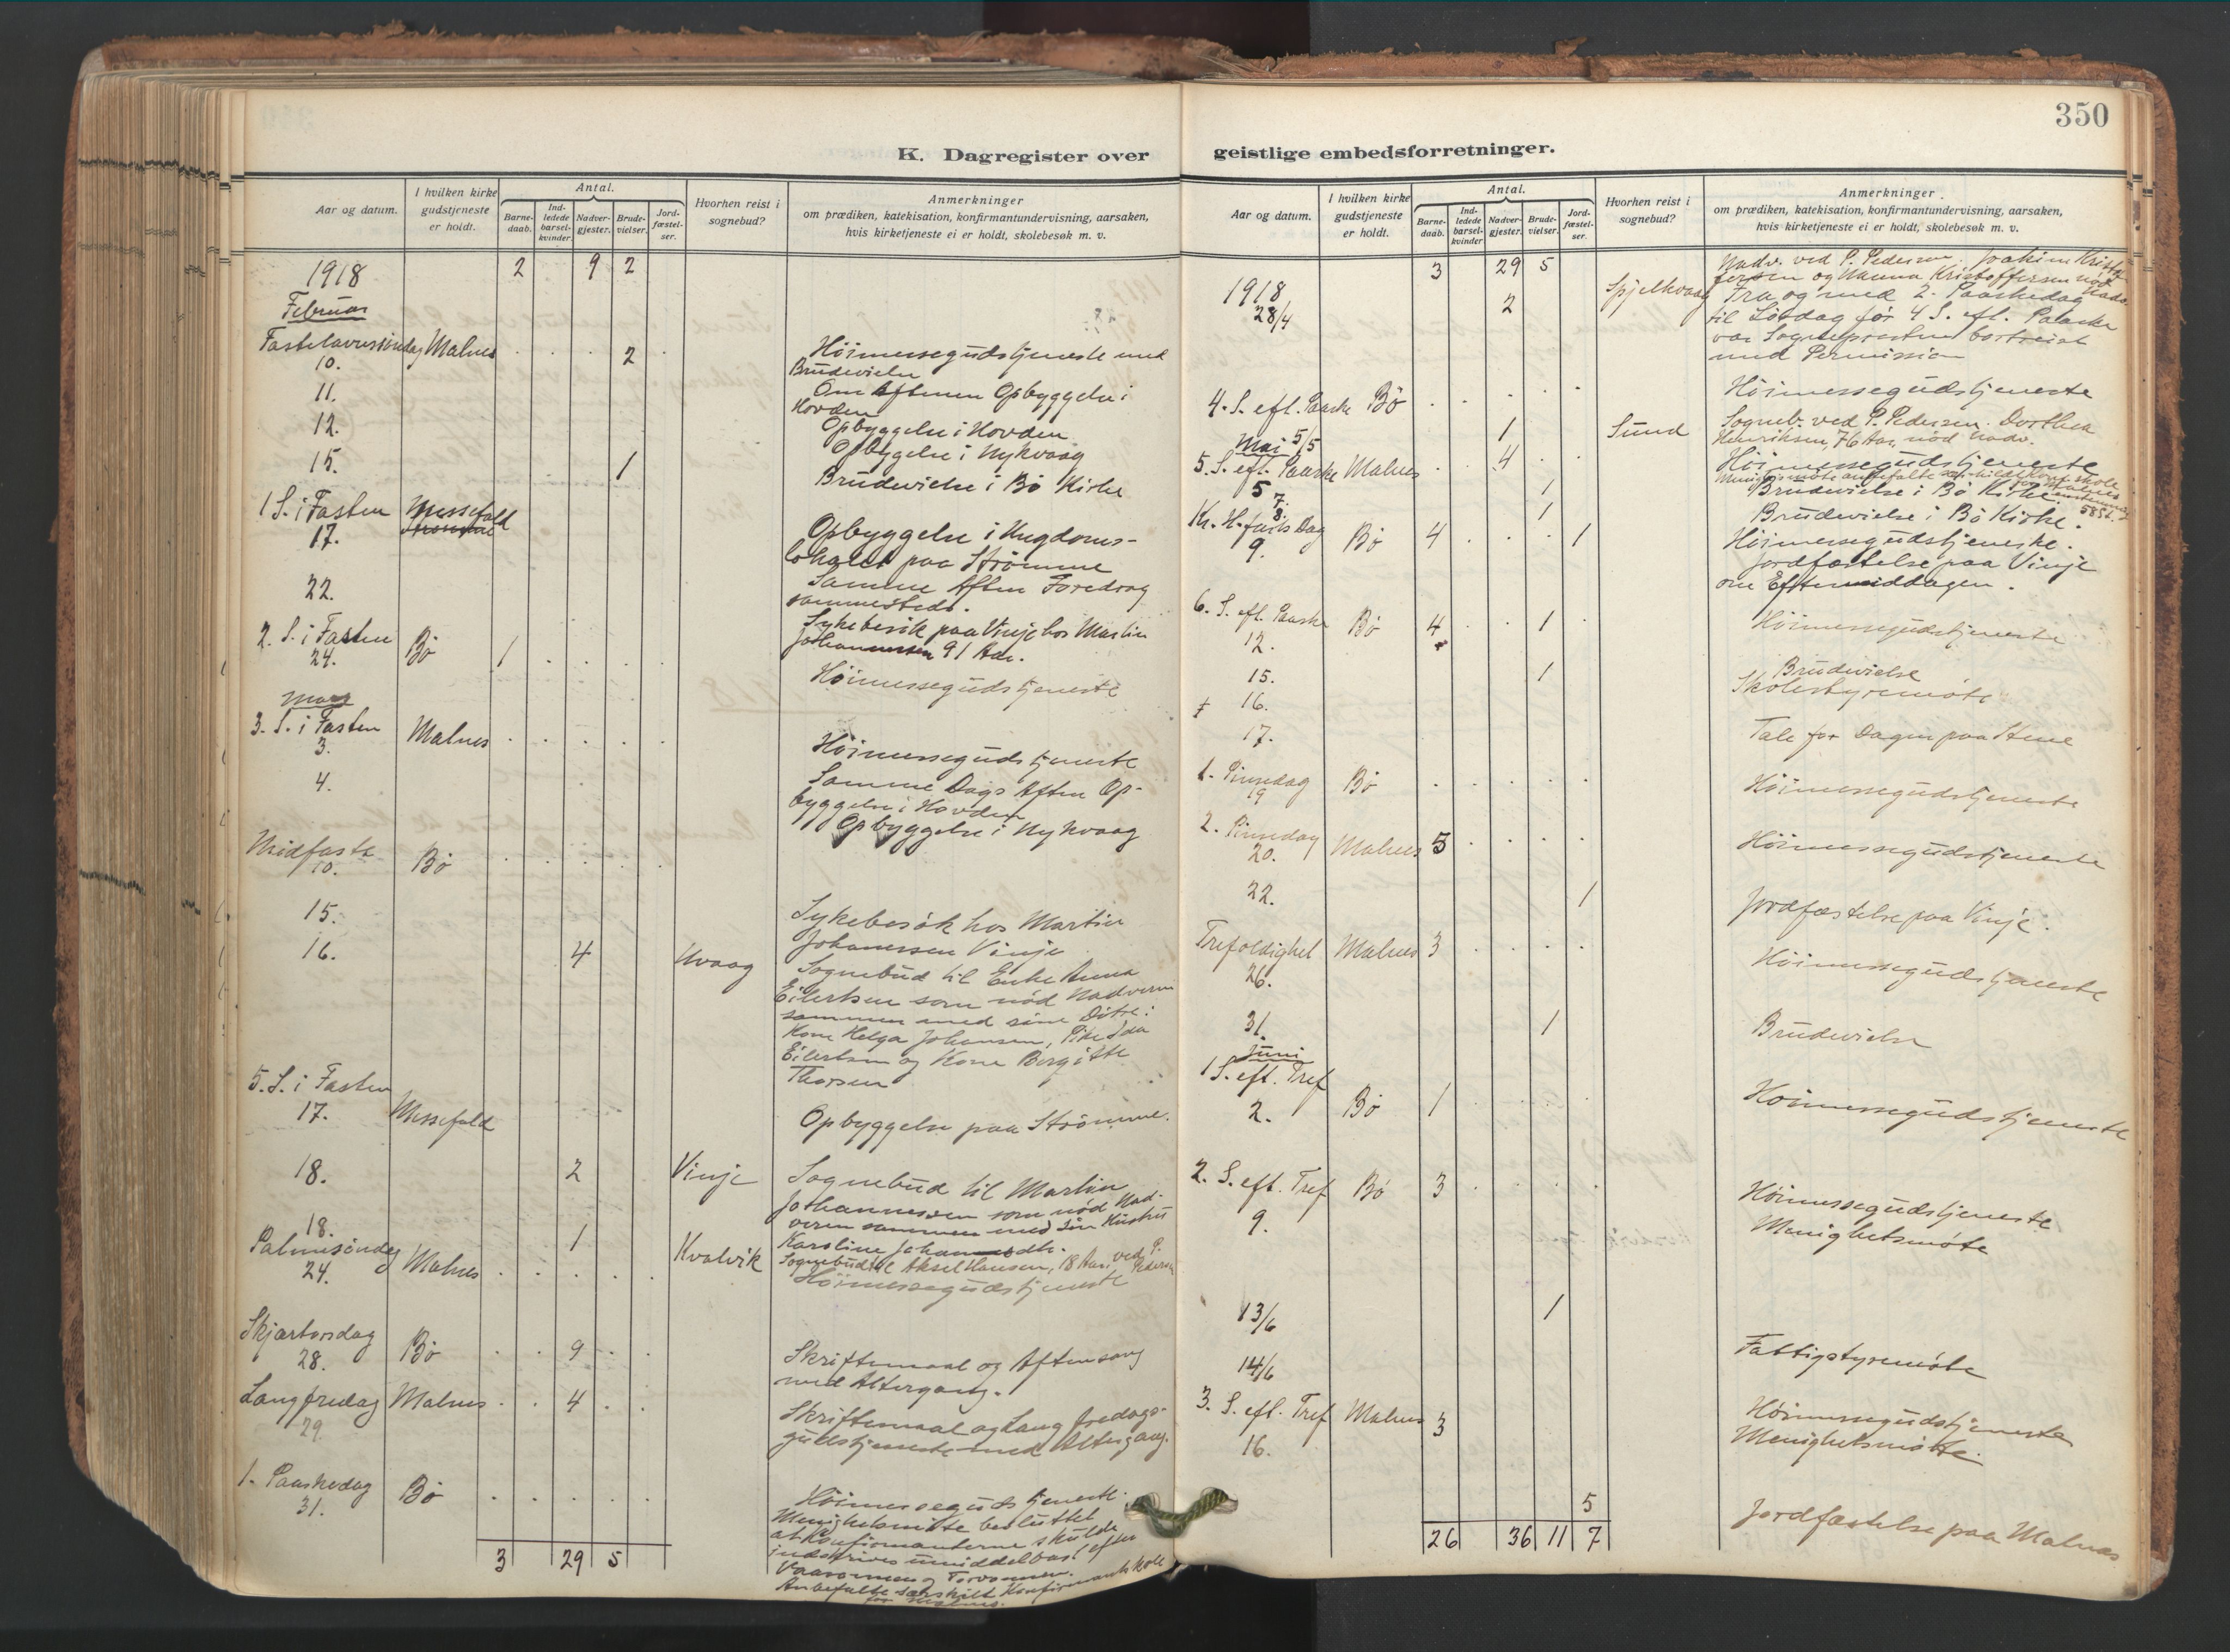 350
K. Dagregister over
Aar og datum.
I hvilken kirke gudstjeneste er holdt.
Antal.
Barne-daab.
Ind-ledede barsel-kvinder.
Nadver-gjester.
Brude-vielser.
Jord-fæstel-ser.
Hvorhen reist i sognebud?
Anmerkninger
om prædiken, katekisation, konfirmantundervisning, aarsaken,
hvis kirketjeneste ei er holdt, skolebesøk m. v.
1918 2 9 2
Februar
Fastelavnssöndag Malnes . . . 2 . Höimessegudstjeneste med
10. Brudevielse
11. Om Aftenen Opbyggelse i
Hovden
12. Opbyggelse i Hovden
Opbyggelse i Nykvaag
15. 1 Brudevielse i Bö Kirke
1 S. i Fasten Messefald
17. Opbyggelse i Ungdoms-
lokalet paa Strömme
Samme Aften Foredrag
sammesteds.
22. Sykebesök paa Vinje hos Martin
Johannessen 91 Aar.
2. S. i Fasten Bö 1 . . . .
24. Höimessegudstjeneste
Mars
3. S. i Fasten Malnes . . . . .
3. Höimessegudstjeneste
Samme Dags Aften Op-
byggelse i Hovden
4. Opbyggelse i Nykvaag
Midfaste Bö . . . . .
10.
15. Sykebesök hos Martin
Johanessen Vinje
16. 4 Uvaag Sognebud til Enke Anna
Eilertsen som nöd Nadveren
sammen med sine Dötre:
Kone Helga Johansen, Pike Ida
Eilertsen og Kone Bergitte
Thorsen
5. S. i Fasten
17. Messefald Opbyggelse paa Strömme.
18. 2 Vinje Sognebud til Martin
Johannessen som nöd Nad-
veren sammen med sin Hustru
Karoline Johannesdtr.
18. 1 Kvalvik Sognebud til Aksel Hansen, 18 Aar, ved P. Pedersen
Palmesöndag Malnes . . . . . Höimessegudstjeneste
24.
Skjærtorsdag Bö . . 9 . . Skriftemaal og Aftensang
28. med Altergang.
Langfredag Malnes . . 4 . . Skriftemaal og Langfredags-
29. gudstjeneste med Altergang.
1. Paaskedag Bö . . . . . Höimessegudstjeneste.
31. Menighetsmöte besluttet
at Konfirmanterne skulde
indskrives umiddelbart efter
Vaaronnen
Anbefalte særskilt Konfirmantskole
for Malnes.
3 29 5
geistlige embedsforretninger.
Aar og datum.
I hvilken kirke gudstjeneste er holdt.
Antal.
Barne-daab.
Ind-ledede barsel-kvinder
Nadver-gjester.
Brude-vielser.
Jord-fæstel-ser.
Hvorhen reist i sognebud?
Anmerkninger.
om prædiken, katekisation, konfirmantundervisning, aarsaken,
hvis kirketjeneste ei er holdt, skolebesøk m. v.
3 29 5
1918 Nadv. ved P. Pedersen. Joakim Kristof-
fersen og Hanna Kristoffersen nöd Nadv.
28/4 2 Spjelkvaag Fra og med 2. Paaskedag
til Lördag för 4 S. eft. Paaske
var Sognepresten bortreist
med Permission
4. S. eft. Paaske Bö . . . . . Höimessegudstjeneste
Mai 5/5 1 Sund Sogneb. ved P. Pedersen. Dorthea
Henriksen, 76 Aar, nöd Nadv.
5. S. eft. Paaske Malnes . . 4 . . Höimessegudstjeneste
5
7. 1 Brudevielse i Bö Kirke
8. 1 Brudevielse i Bö Kirke.
Kr. H.farts Dag Bö 4 . . . 1 Höimessegudstjeneste.
9. Jordfæstelse paa Vinje
om Eftermiddagen.
6. S. eft. Paaske Bö 4 . . 1 . Höimessegudstjeneste
12.
15. 1 Brudevielse
16. Skolestyremöte
17. Tale for Dagen paa Steine
1. Pinsedag Bö . . . . . Höimessegudstjeneste
19
2. Pinsedag Malnes 5 . . . . Höimessegudstjeneste
20.
22. 1 Jordfæstelse paa Vinje.
Trefoldighet Malnes 3 . . . . Höimessegudstjeneste
26.
31. 1 Brudevielse
Juni
1 S. eft. Tref
2. Bö 1 . . . . Höimessegudstjeneste
2. S. eft. Tref Bö 3 . . . . Höimessegudstjeneste
9. Menighetsmöte
13/6 1
14/6 Fattigstyremöte
3. S. eft. Tref Malnes 3 Höimessegudstjeneste
16. Menighetsmöte.
5 Jordfæstelse paa Malnes
26 36 11 7